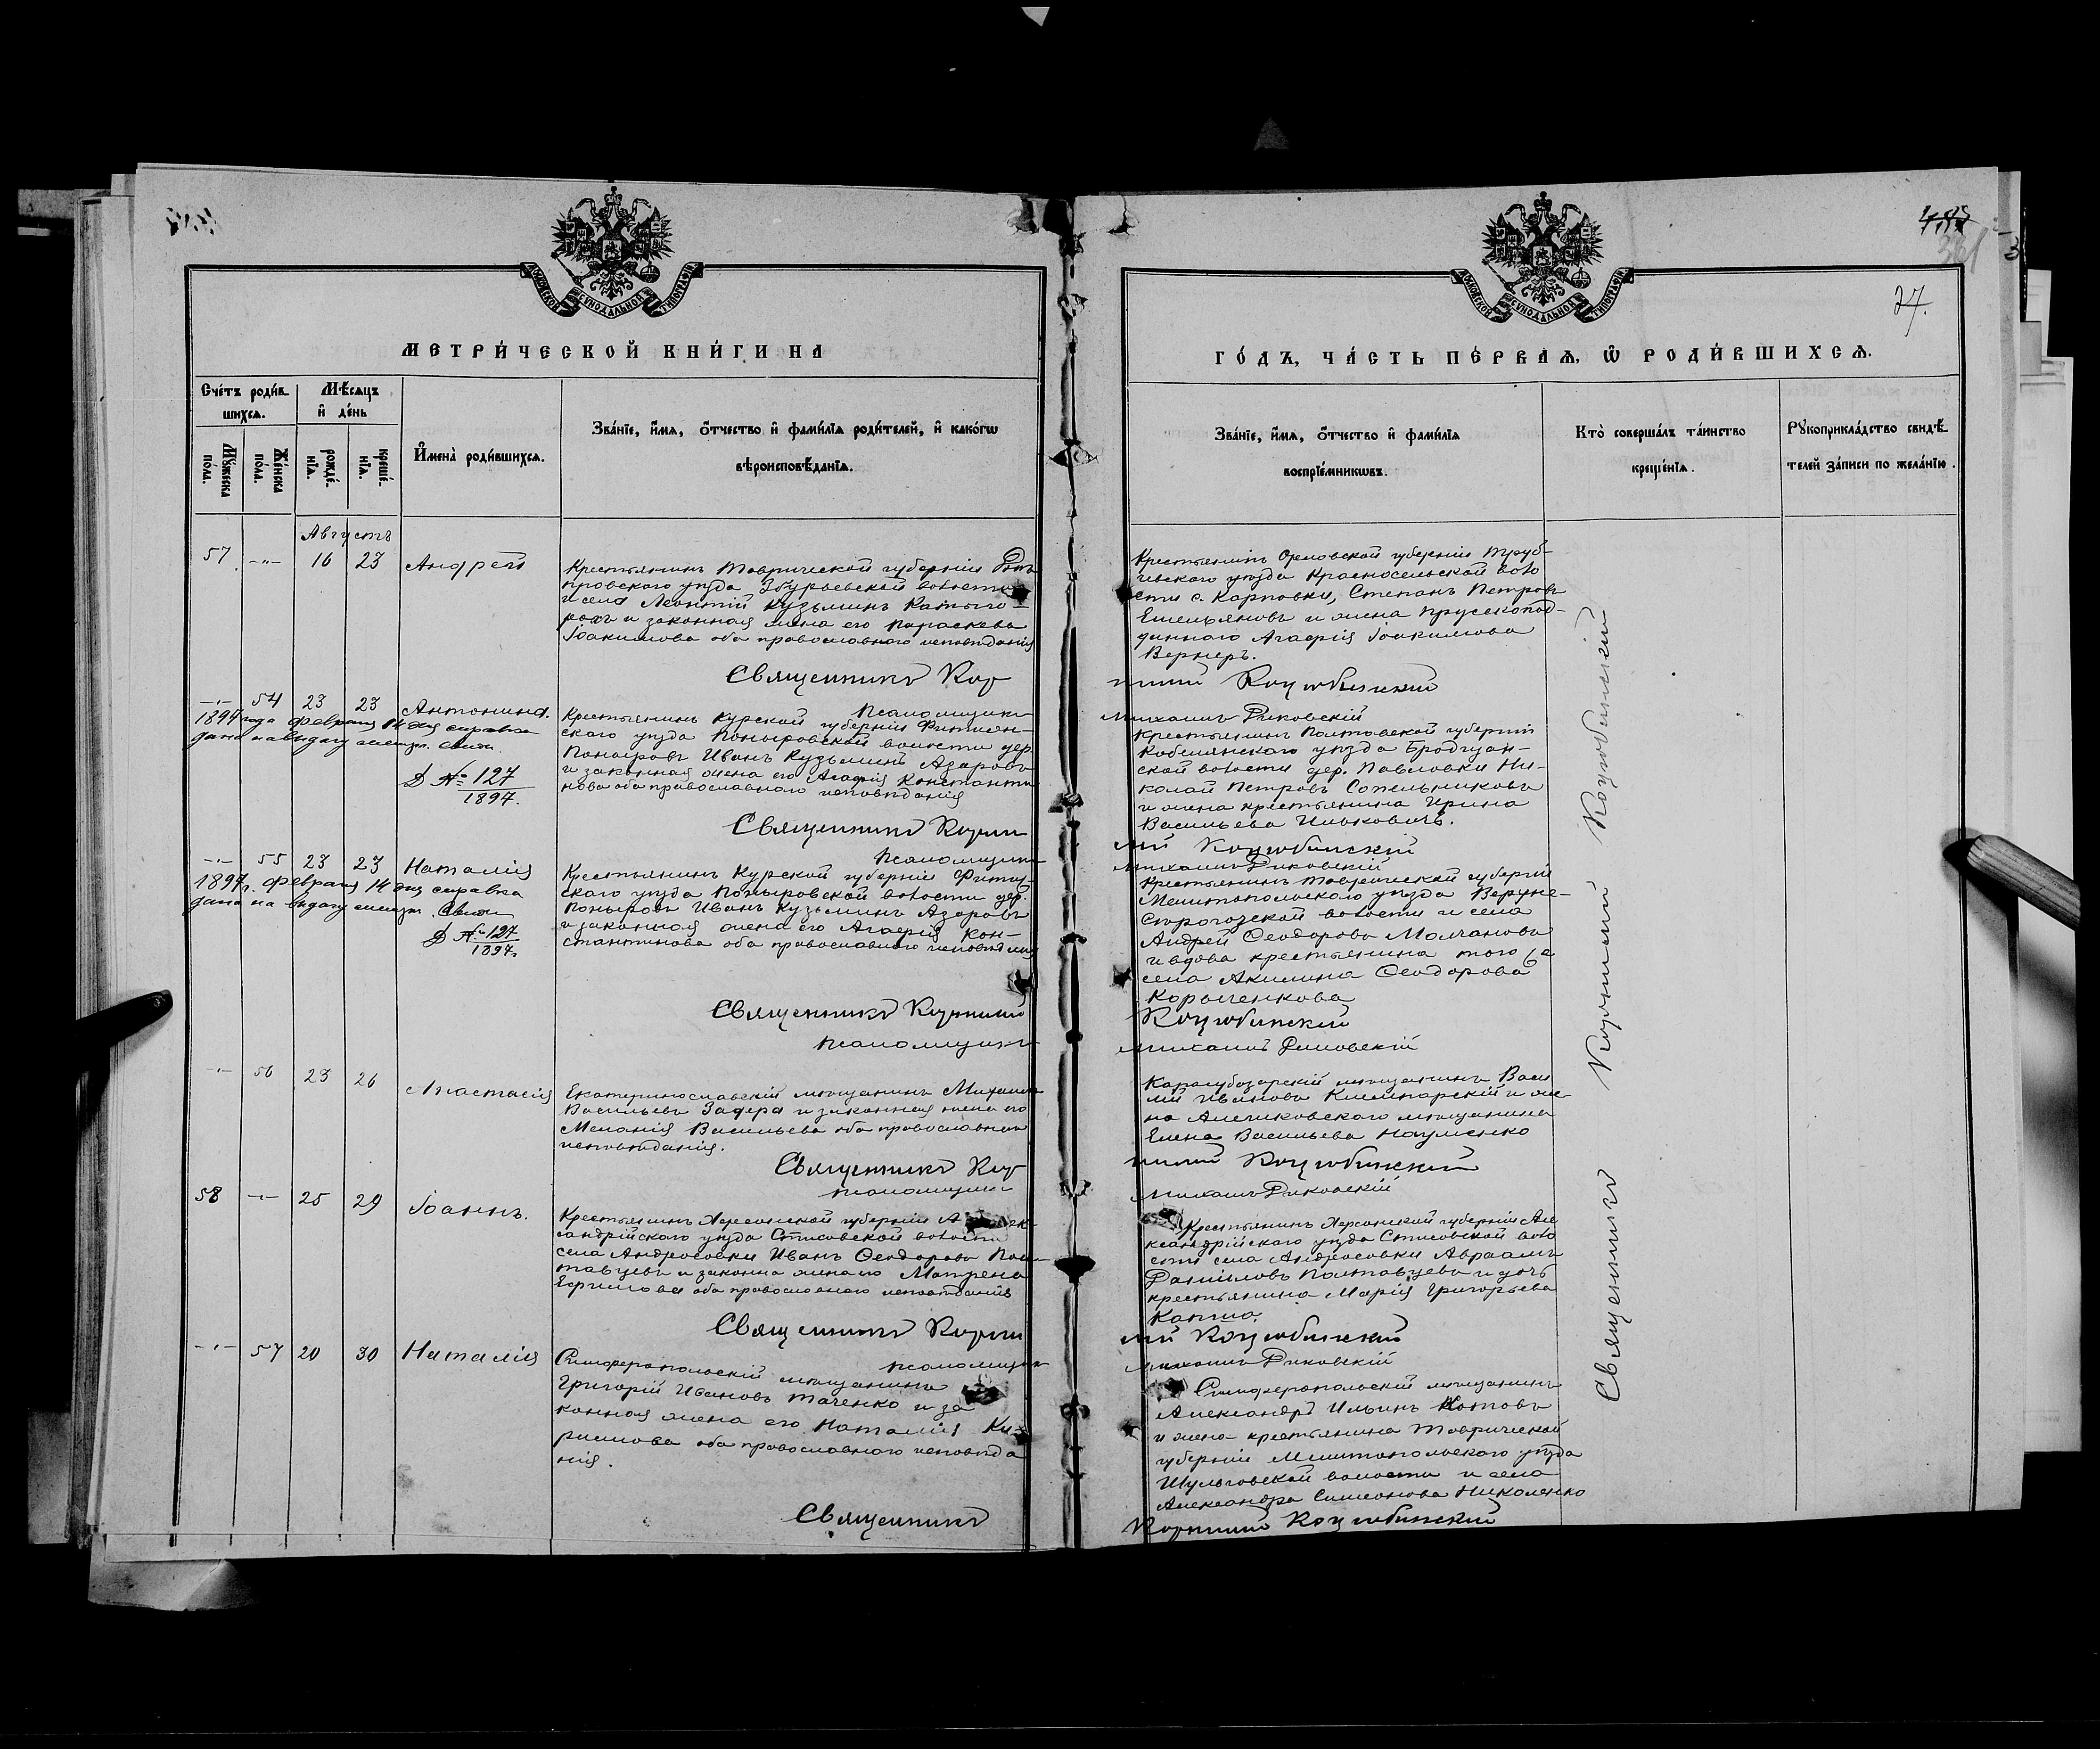 МОСКОВСКОЙ СѴНОДАЛЬНОЙ ТИПОГРАФІИ
МЕТРИ́ЧЕСКОЙ КНИ́ГИ НА
Сче́тъ роди́в-
шихсѧ.
Мꙋ́жеска по́ла.
Же́нска по́ла.
Мѣ́сѧцъ
и҆ де́нь
рожде́-
нїѧ.
креще́-
нїѧ.
И҆мена̀ роди́вшихсѧ.
Зва́нїе, и҆́мѧ, ѻ҆́тчество и҆ фами́лїѧ роди́телей, и҆ како́гѡ
вѣроисповѣ́данїѧ.
Августъ
57 -"- 16 23 Андрей
Крестьянинъ Таврической губерніи Днѣ
провскаго уѣзда Збурьевской волости
и села Леонтій Кузьминъ
и законная жена его Параскева
Іоакимова оба православнаго исповѣданія
Священникъ Кор
Псаломщикъ
-"- 54 23 23 Антонина.
1897 года февраля 14 дня справка
дана на выдачу метр. Свид.
Д № 127
1897.
Крестьянинъ Курской губерніи
скаго уѣзда Поныровской волости дер.
Поныровъ Иванъ Кузьминъ Азаровъ
и законная жена его Агафія Константи
нова оба православнаго исповѣданія
Священникъ Корни
Псаломщикъ
-"- 55 23 23 Наталія
1897 г. февраля 14 дня справка
дана на выдачу метр. Свид.
Д № 127
1897.
Крестьянинъ Курской губерніи
скаго уѣзда Поныровской волости дер.
Поныровъ Иванъ Кузьминъ Азаровъ
и законная жена его Агафія Кон-
стантинова оба православнаго исповѣданія
Священникъ Корнилій
Псаломщикъ
-"- 56 23 26 Анастасія
Екатеринославскій мѣщанинъ Михаилъ
Васильевъ Задера и законная жена его
Меланія Васильева оба православнаго
исповѣданія.
Священникъ Кор
Псаломщикъ
58 -"- 25 29 Іоаннъ.
Крестьянинъ Херсонской губерніи Алек-
сандрійскаго уѣзда волости
села Андросовки Иванъ Ѳеодоровъ Пол
тавцевъ и законна жена его Матрена
Ефимова оба православнаго исповѣданія
Священникъ Корни
Псаломщикъ
-"- 57 20 30 Наталія
Симферопольскій мѣщанинъ
Григорій Ивановъ Таченко и за
конная жена его Наталія Ки-
рилова оба православнаго исповѣда
нія.
Священникъ
МОСКОВСКОЙ СѴНОДАЛЬНОЙ ТИПОГРАФІИ
27.
ГО́ДЪ, ЧА́СТЬ ПЕ́РВАѦ, Ѡ҆ РОДИ́ВШИХСѦ.
Зва́нїе, и҆́мѧ, ѻ҆́тчество и҆ фами́лїѧ
воспрїе́мникѡвъ.
Кто̀ соверша́лъ та́инство
креще́нїѧ.
Рꙋкоприкла́дство свидѣ́-
телей за́писи по жела́нїю.
Крестьянинъ Орловской губерніи Труб-
чевскаго уѣзда Красносельской воло
сти с. Карповки, Степанъ Петровъ
Емельяновъ и жена прусскопод-
даннаго Агафія Іоакимова
Вернеръ.
нилій Коцюбинскій
Михаилъ Диковскій
Крестьянинъ Полтавской губерніи
Кобелякскаго уѣзда
ской волости дер. Павловки Ни-
колай Петровъ Сотельниковъ
и жена крестьянина Ирина
Васильева
лій Коцюбинскій
Михаилъ Диковскій
Крестьянинъ Таврической губерніи
Мелитопольскаго уѣзда Верхне-
Сырогозской волости и села
Андрей Ѳеодоровъ Молчановъ
и вдова крестьянина того же
села Акилина Ѳеодорова
Коцюбинскій
Михаилъ Диковскій
Карасубазарскій мѣщанинъ Васи
лій Ивановъ и же
на Алешковскаго мѣщанина
Елена Васильева Науменко
нилій Коцюбинскій
Михаилъ Диковскій
Крестьянинъ Херсонской губерніи Але
ксандрійскаго уѣзда воло
сти села Андросовки Авраамъ
Даніиловъ Полтавцевъ и дочь
крестьянина Марія Григорьева
лій Коцюбинскій
Михаилъ Диковскій
Симферопольскій мѣщанинъ
Александръ Ильинъ Котовъ
и жена крестьянина Таврической
губерніи Мелитопольскаго уѣзда
Шульговской волости и села
Александра Симеонова Николенко
Корнилій Коцюбинскій
Священникъ Корнилій Коцюбинскій